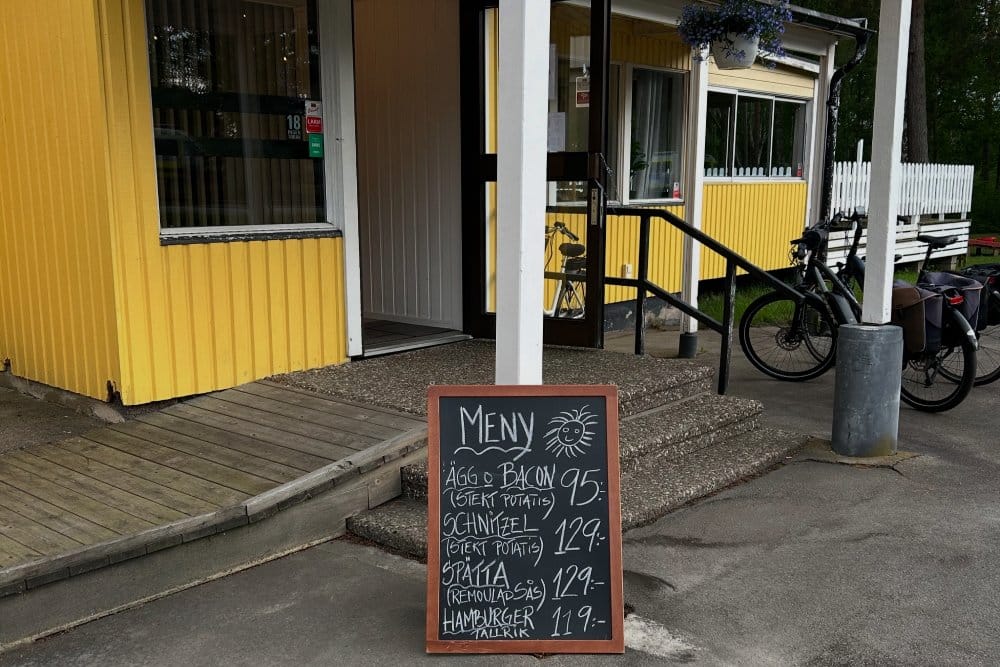 18
MENY
ÄGG O BACON 95:-
(STEKT POTATIS)
SCHNITZEL 129:-
(STEKT POTATIS)
SPÄTTA 129:-
(REMOULADSÅS)
HAMBURGER 119:-
TALLRIK